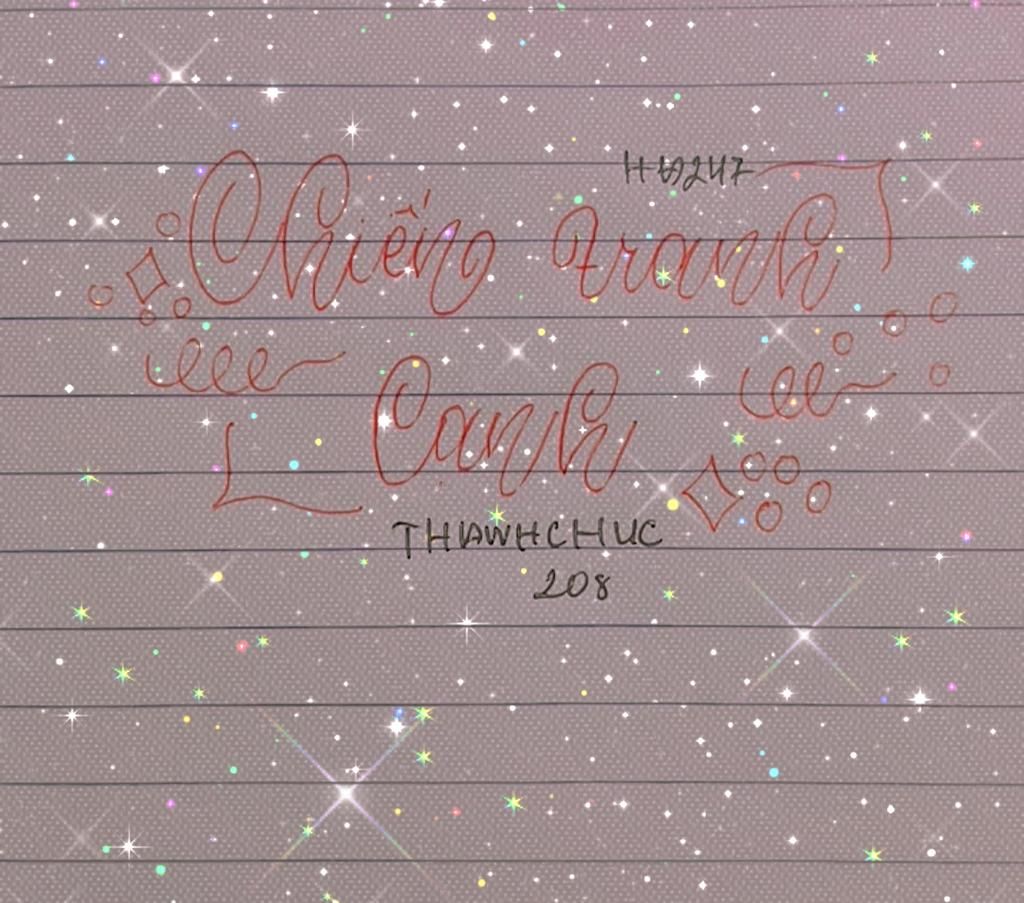 HA247
Chiến tranh
Cạnh
THAWHCHUC
208